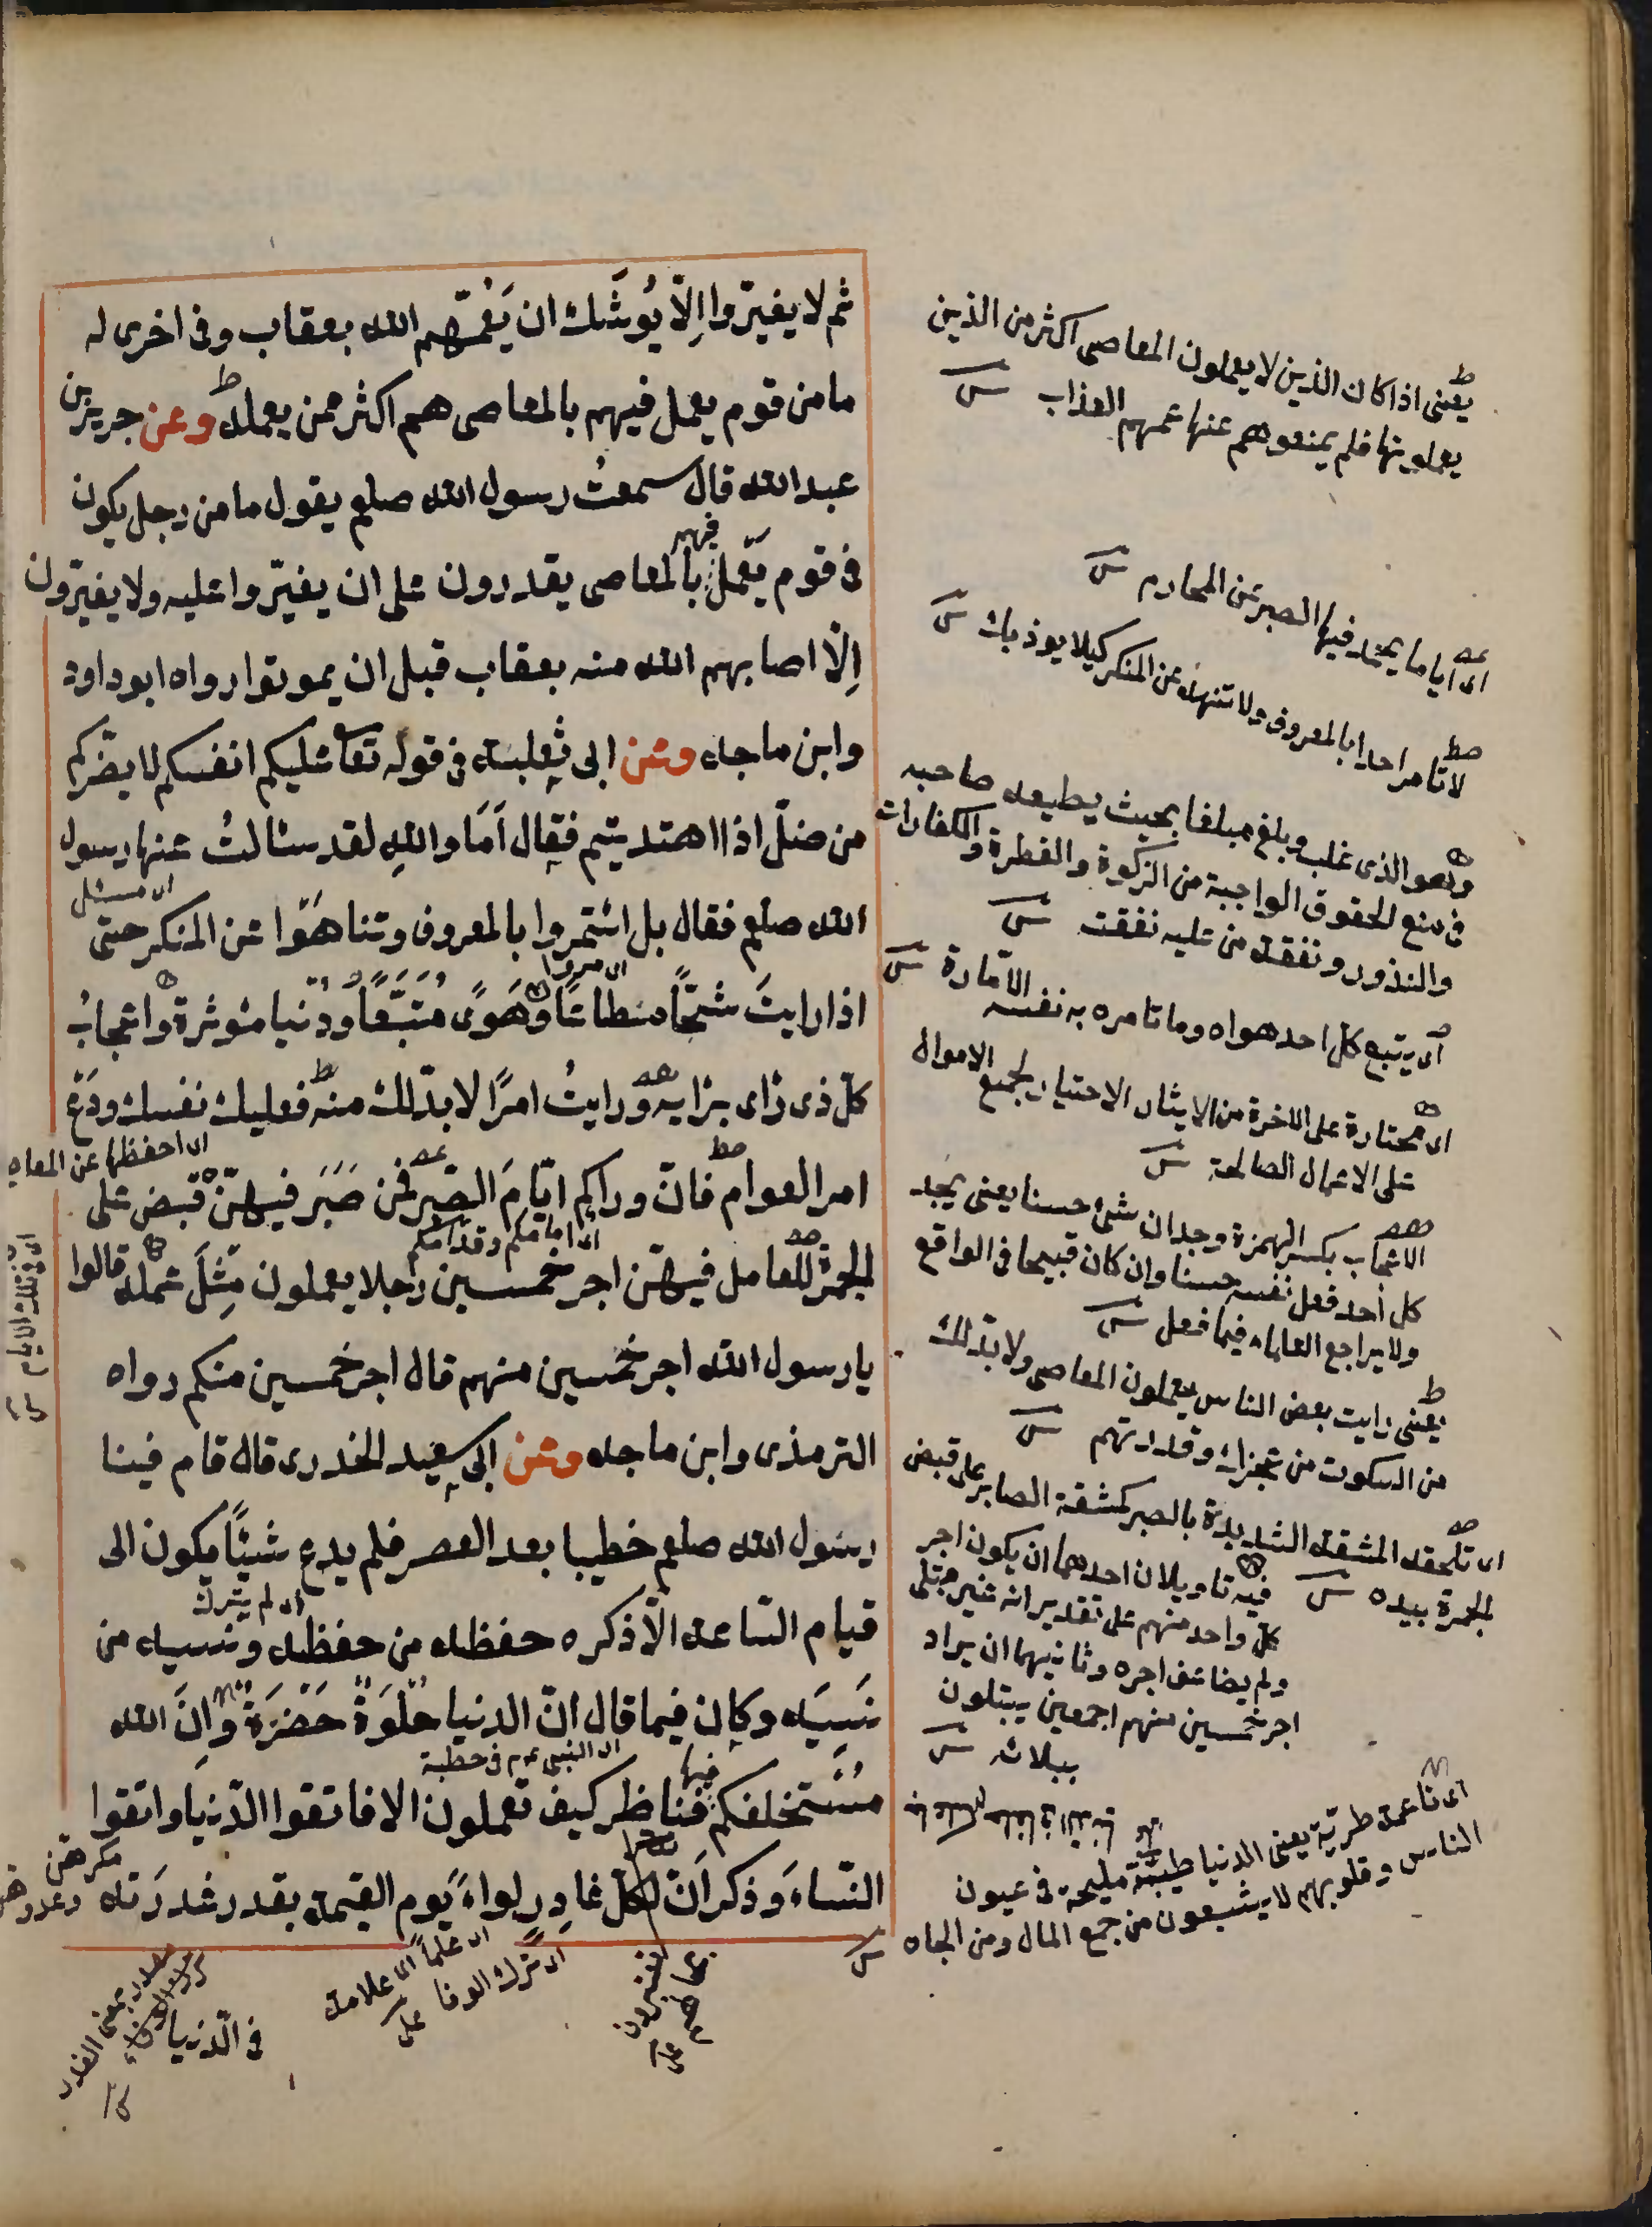 ثم لا يغيّروا اِلّا يُوشَك ان يَعُمّهم الله بعقاب وفى اخرى له
ما من قوم يعمل فيهم بالمعاصى هم اكثر ممن يعمله وعن جرير بن
عبد الله قال سمعتُ رسول الله صلعم يقول ما من رجل يكون
فى قوم يَعْمل فيهم بالمعاصى يقدرون على ان يغيّروا عليه ولا يغيّرون
اِلّا اصابهم الله منه بعقاب قبل ان يموتوا رواه ابو داود
وابن ماجه وعن ابى ثعلبة فى قوله تعا عليكم انفسكم لا يضركم
من ضلّ اذا اهتديتم فقال اَمَا واللهِ لقد سئالتُ عنها رسول
الله صلعم فقال بل ائتمروا بالمعروف وتناهَوْا عن المنكر حتى
اذا رايتَ شُحّاً مطاعًا وهَوًى مُتَّبَعًا ودنيا مؤثرة واعجابُ
كلّ ذى رَاى برَايه ورايتُ امرًا لا بدّ لك منه فعليك نفسك ودَعْ
امر العوام فانّ وراكم ايّامَ الصّبر فمن صَبَرَ فيهنّ قبض على
الجمرّ للعامل فيهنّ اجر خمسين رجلا يعملون مِثلَ عمله قالوا
يا رسول الله اجر خمسين منهم قال اجر خمسين منكم رواه
الترمذى وابن ماجه وعن ابى سعيد الخدرى قال قام فينا
رسول الله صلعم خطيبا بعد العصر فلم يدع شيئًا يكون الى
قيام السّاعة الّا ذكره حفظه من حفظه ونسيه من
نَسِيَه وكان فيما قال انّ الدنيا حُلْوَةٌ خَضِرَةٌ وانَّ الله
مُسْتخلفكم فيها فناظر كيف تعملون الا فاتقوا الدّنيا واتقوا
النّساءَ وذكر اَنّ لكلّ غادِرٍ لواءً يَوم القيمة بقدر غدرَته
يعنى اذا كان الذين لا يعملون المعاصى اكثر من الذين
يعملونها فلم يمنعوهم عنها عمهم العذاب
اى اياما يحمد فيها الصبر عن المحارم
لا تامر احدا بالمعروف ولا تنهه عن المنكر كيلا يوذيك
وهو الذى غلب وبلغ مبلغا بحيث يطيعه صاحبه
فى منع الحقوق الواجبة من الزكوة والفطرة والكفارات
والنذور ونفقة من عليه نفقت
اى يتبع كل احد هواه وما تامره به نفسه الامّارة
اى مختارة على الاخرة من الايثار الاختيار لجمع الاموال
على الاعمال الصالحة
الاعجاب بكسر الهمزة وجدان شئ حسنا يعنى يجد
كل احد فعل نفسه حسنا وان كان قبيحا فى الواقع
ولا يراجع العلماء فيما فعل
يعنى رايت بعض الناس يعملون المعاصى ولا بدّ لك
من السكوت من عجزك وقدرتهم
اى تلحقه المشقة الشديدة بالصبر كمشقة الصابر على قبض
الجمرة بيده
فيه تاويلان احدهما ان يكون اجر
كل واحد منهم على تقدير انه غير مبتلى
ولم يضاعف اجره وثانيهما ان يراد
اجر خمسين منهم اجمعين يبتلون
ببلائه
اى ناعمة طريّة يعنى الدنيا طيبّة مليحة فى عيون
الناس وقلوبهم لا يشبعون من جمع المال ومن الجاه
اى مسئل
اى مروا
اى احفظها عن المعاصى
اى امامكم وقدامكم
اى فى تلك الايام
اى لم يترك
اى النبى عم فى خطبة
مكرهن
اى علماً اى علامة
اى ترك الوفا
فى الدّنيا